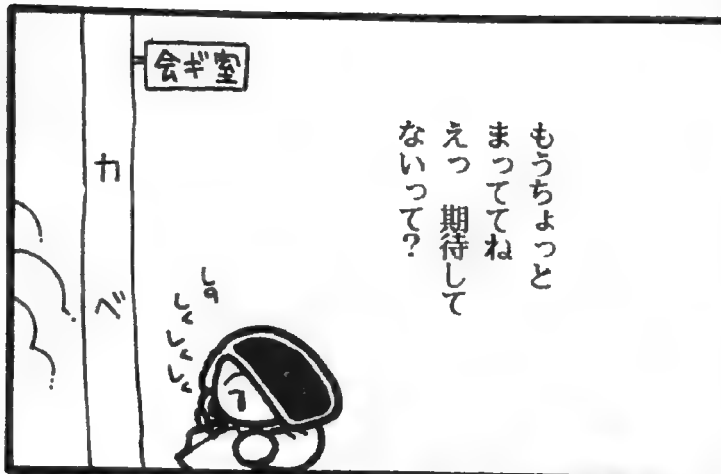 会ギ室
もうちょっと
まっててね
えっ 期待して
ないって?
カベ
しくしくしく